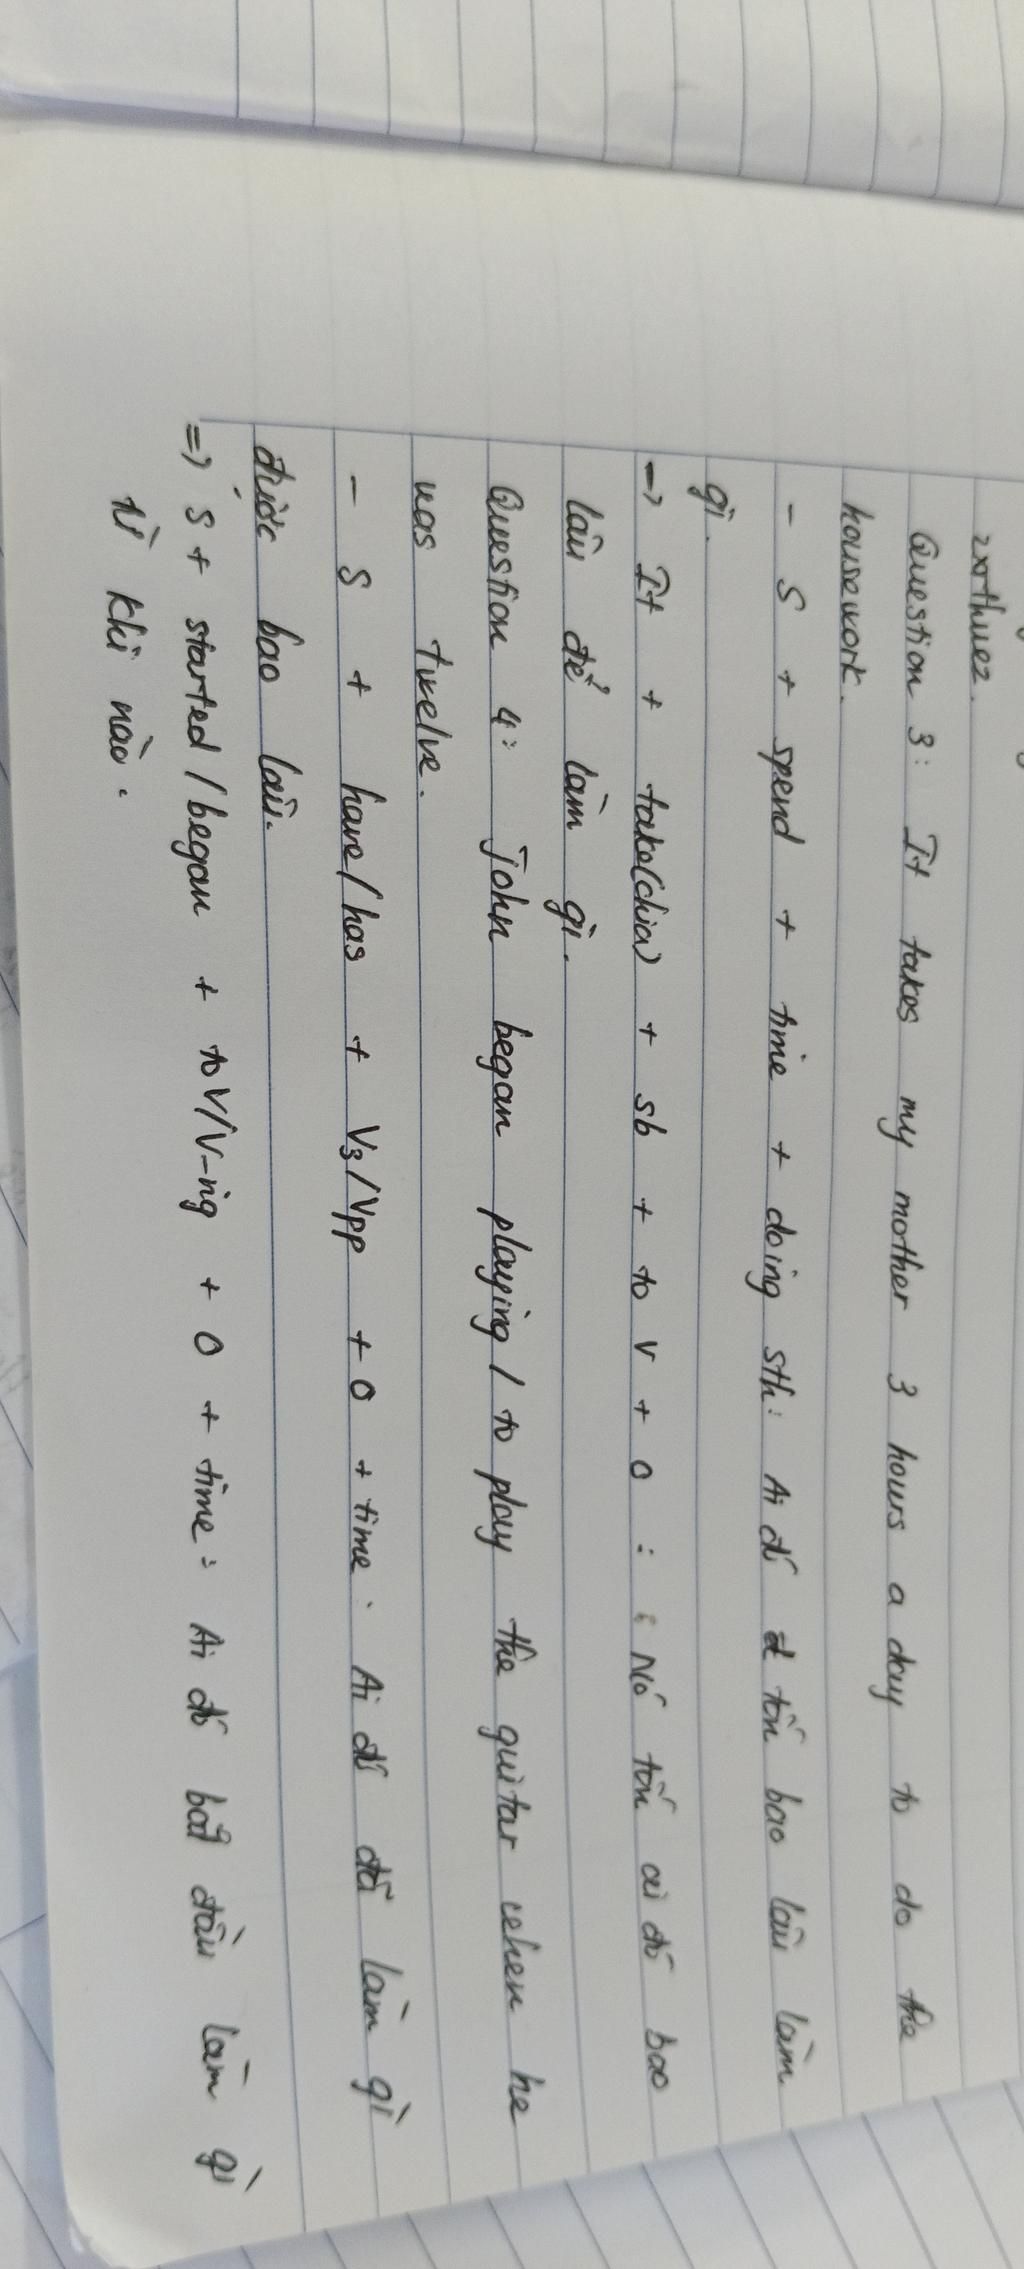 Question 3: It takes my mother 3 hours a day to do the
housework.
- S + spend + time + doing sth: Ai đó tốn bao lâu làm
gì.
→ It + take(chia) + sb + to V + O : Nó tốn ai đó bao
lâu để làm gì.
Question 4: John began playing / to play the guitar when he
was twelve.
- S + have/has + V3/Vpp + O + time: Ai đó đã làm gì
được bao lâu.
=> S + started/began + to V/V-ing + O + time: Ai đó bắt đầu làm gì
từ khi nào.